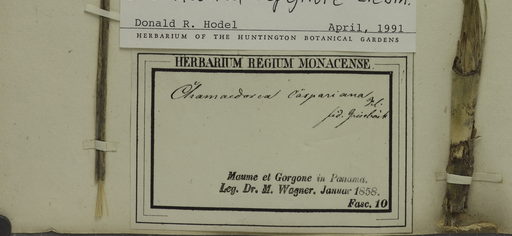 Donald R. Hodel April, 1991
HERBARIUM OF THE HUNTINGTON BOTANICAL GARDENS
HERBARIUM REGIUM MONACENSE
Chamaedorea Caspariana Kl.
fid. Grisebach
Maume et Gorgone in Panama.
Leg. Dr. M. Wagner. Januar 1858.
Fasc. 10